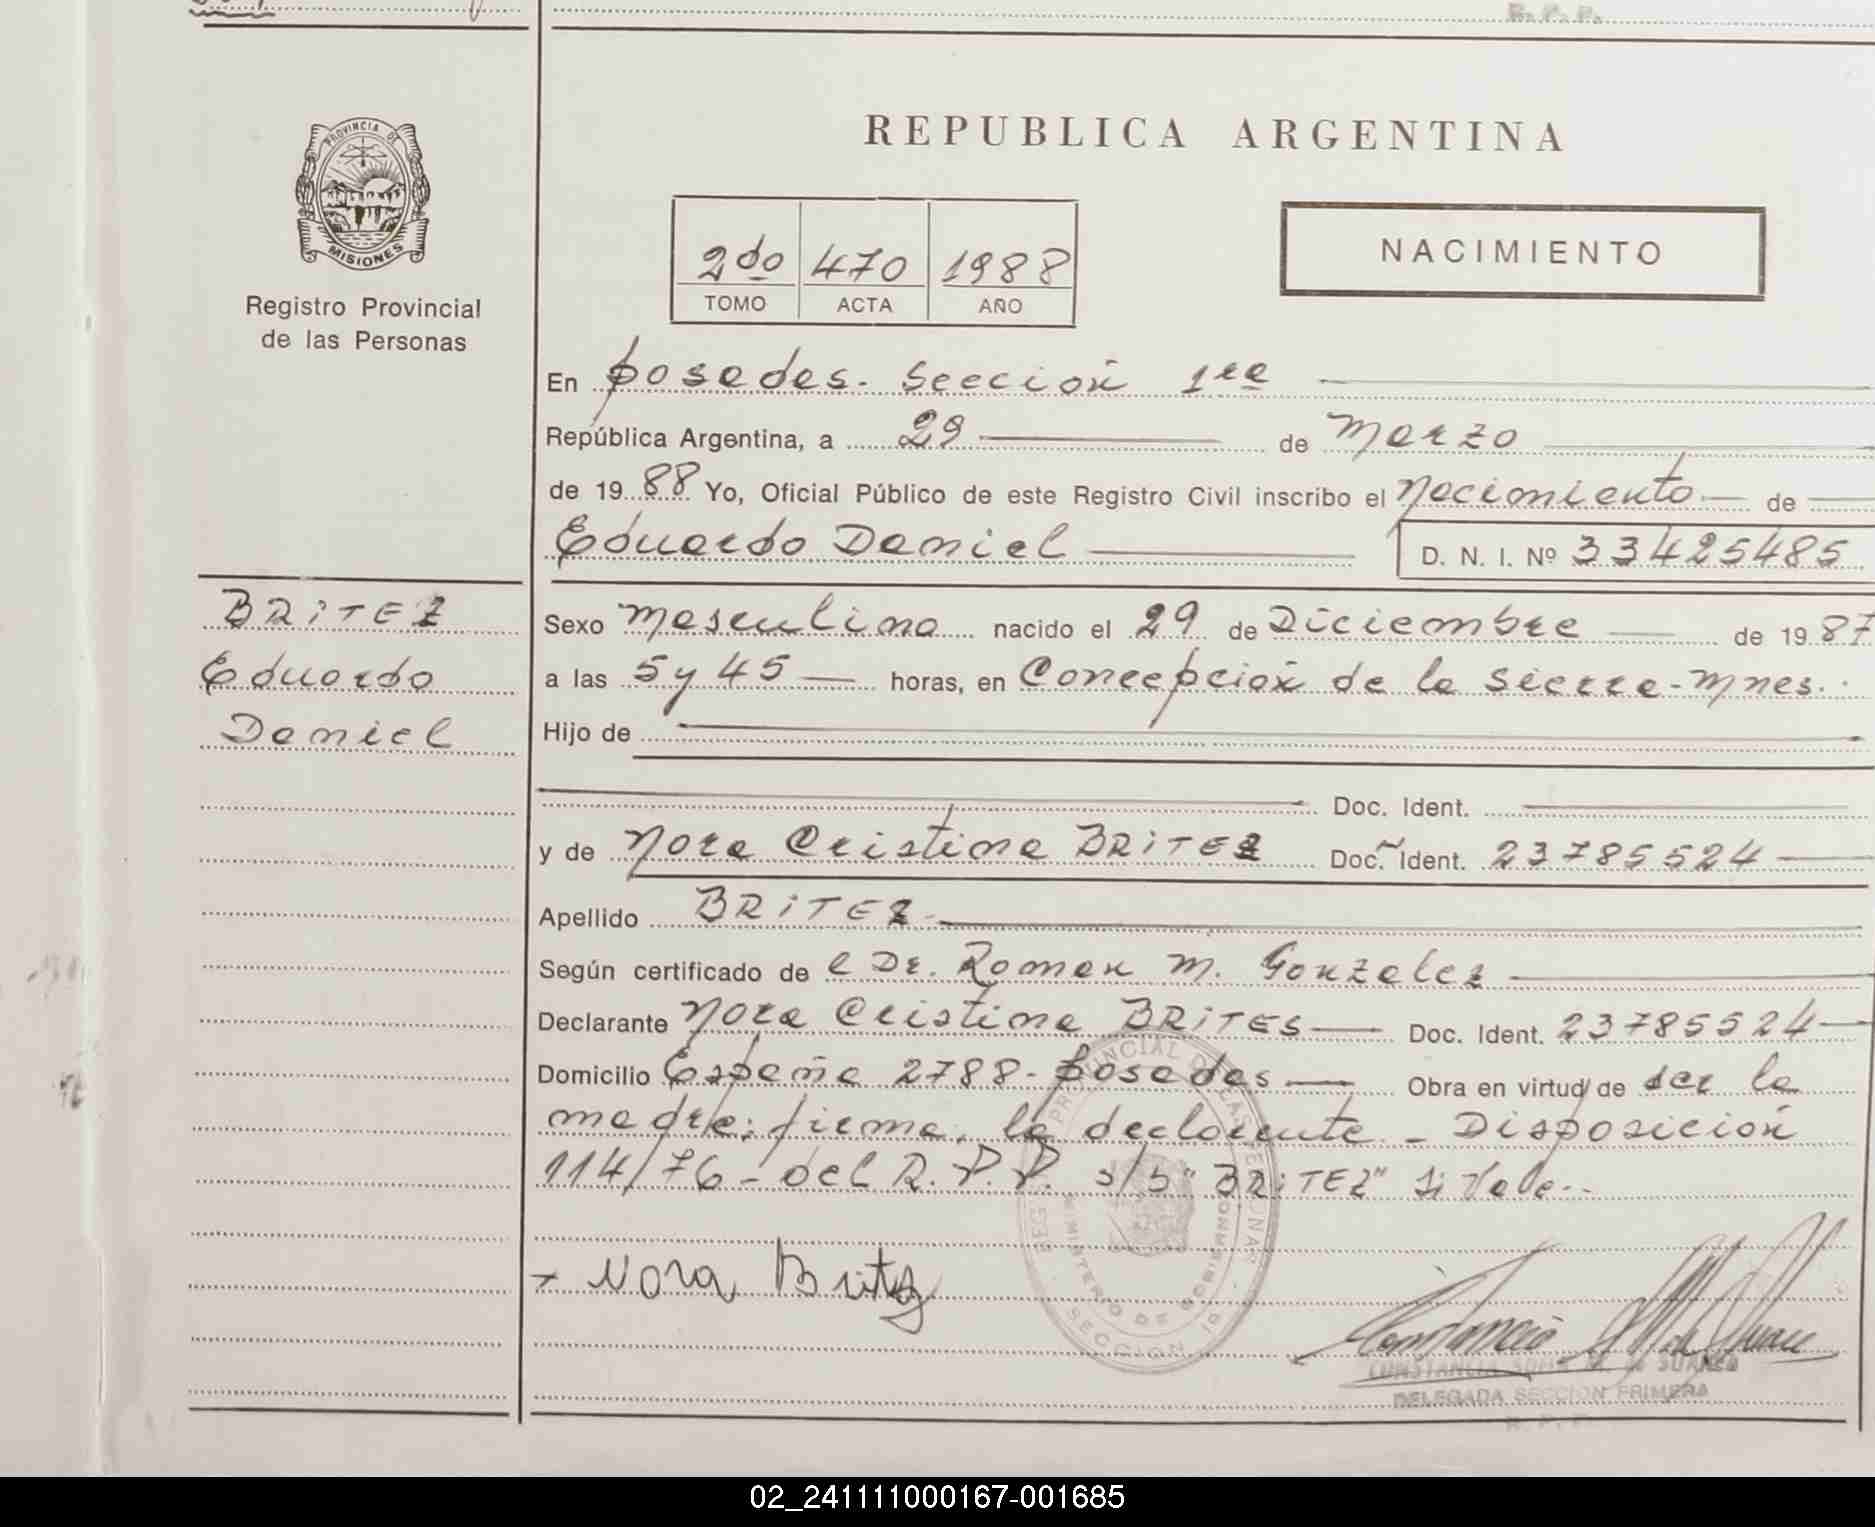 R. P. P.
PROVINCIA DE
MISIONES
Registro Provincial
de las Personas
REPUBLICA ARGENTINA
2do 470 1988
TOMO ACTA AÑO
NACIMIENTO
En posadas. Sección 1ra
República Argentina, a 29 de Marzo
de 1988 Yo, Oficial Público de este Registro Civil inscribo el Nacimiento de
Eduardo Daniel D. N. I. Nº 33425485
BRiTEZ
Eduardo
Daniel
Sexo Masculino nacido el 29 de Diciembre de 1987
a las 5 y 45 horas, en Concepción de la Sierra-Mnes.
Hijo de
Doc. Ident.
y de Nora Cristina BRiTEZ Doc. Ident. 23785524
Apellido BRiTEZ
Según certificado de el Dr. Roman M. Gonzalez
Declarante Nora Cristina BRiTES Doc. Ident. 23785524
Domicilio España 2788-Posadas Obra en virtud de ser la
madre; firma, la declarante - Disposición
114/76-del R.P.P. s/b "BRiTEZ" Si Vale-
Nora Britez
MINISTERIO DE GOBIERNO
SECCION 1a
CONSTANCIA SOFIA M. de SUAREZ
DELEGADA SECCION PRIMERA
R. P. P.
02_241111000167-001685